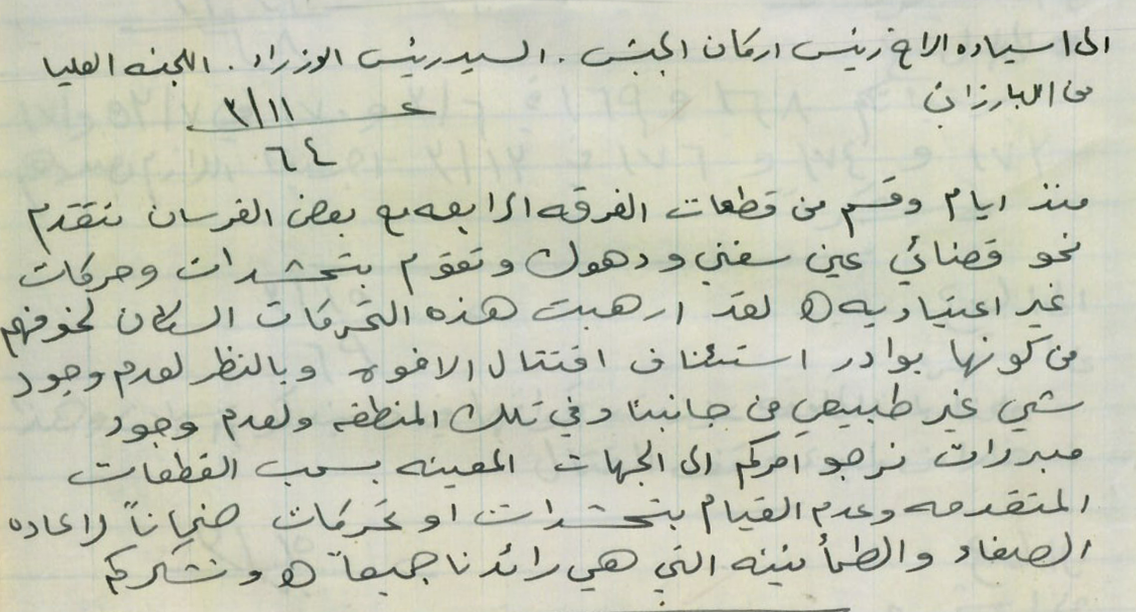 الى / سياده الاخ رئيس اركان الجيش . السيد رئيس الوزراء . اللجنه العليا
من البارزاني
ع ٣/١١
٦٤
منذ ايام وقسم من قطعات الفرقه الرابعه مع بعض الفرسان تتقدم
نحو قضائي عين سفني ودهوك وتقوم بتحشدات وحركات
غير اعتياديه ٥ لقد ارهبت هذه التحركات السكان لخوفهم
من كونها بوادر استئناف اقتتال الاخوه وبالنظر لعدم وجود
شي غير طبيعي من جانبنا وفي تلك المنطقه ولعدم وجود
مبررات نرجو امركم الى الجهات المعينه بسحب القطعات
المتقدمه وعدم القيام بتحشدات او تحركات ضماناً لاعاده
الصفاء والطمأنينه التي هي رائدنا جميعاً ٥ ونشكركم